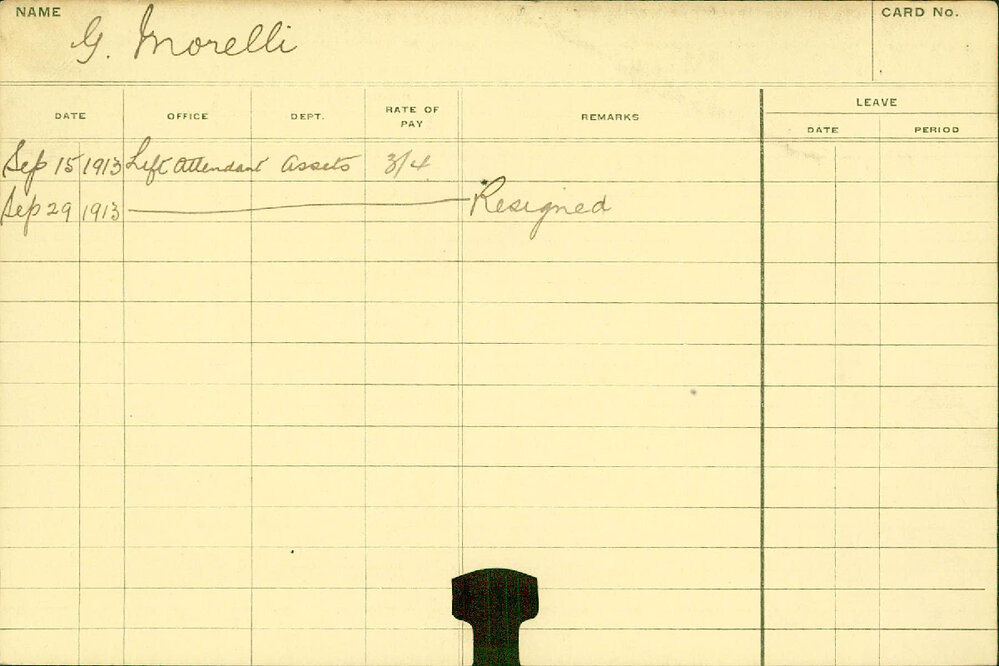 NAME
CARD No.
G. Morelli
DATE OFFICE DEPT. RATE OF PAY REMARKS LEAVE
DATE PERIOD
Sep 15 1913 Lift Attendant Assets 3/4
Sep 29 1913 Resigned